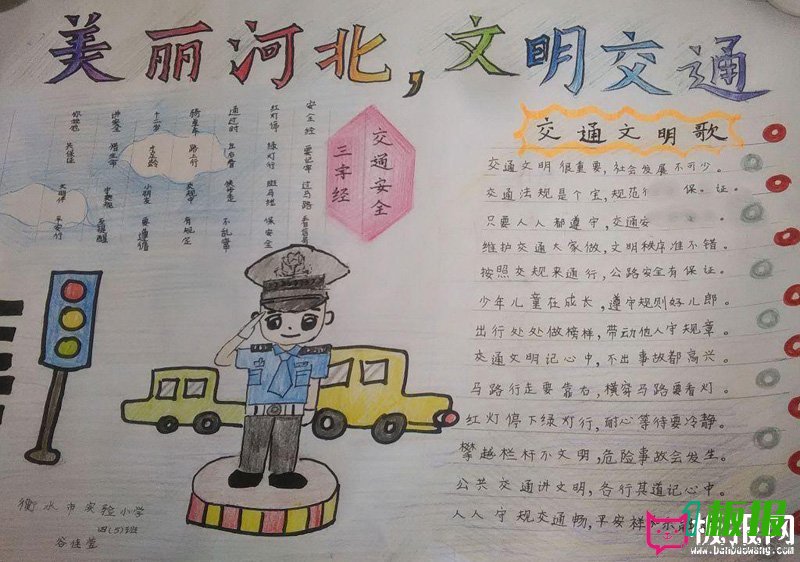 美丽河北,文明交通
交通安全
三字经
安全经 要记牢 过马路
红灯停 绿灯行 斑马线 保安全
不乱常
骑单车 路上行
十二岁
讲安全
共保证
文明伴 平安行
交通文明歌
交通文明很重要,社会发展不可少。
交通法规是个宝,规范 保 证。
只要人人都遵守,交通安
维护交通大家做,文明秩序准不错。
按照交规来通行,公路安全有保证。
少年儿童在成长,遵守规则好儿郎。
出行处处做榜样,带动他人守规章。
交通文明记心中,不出事故都高兴。
马路行走要靠右,横穿马路要看灯。
红灯停下绿灯行,耐心等待要冷静。
攀越栏杆不文明,危险事故会发生。
公共交通讲文明,各行其道记心中。
人人守规交通畅,平安祥
衡水市实验小学
四(5)班
谷佳萱
板报
板报网
www.banbaowang.com